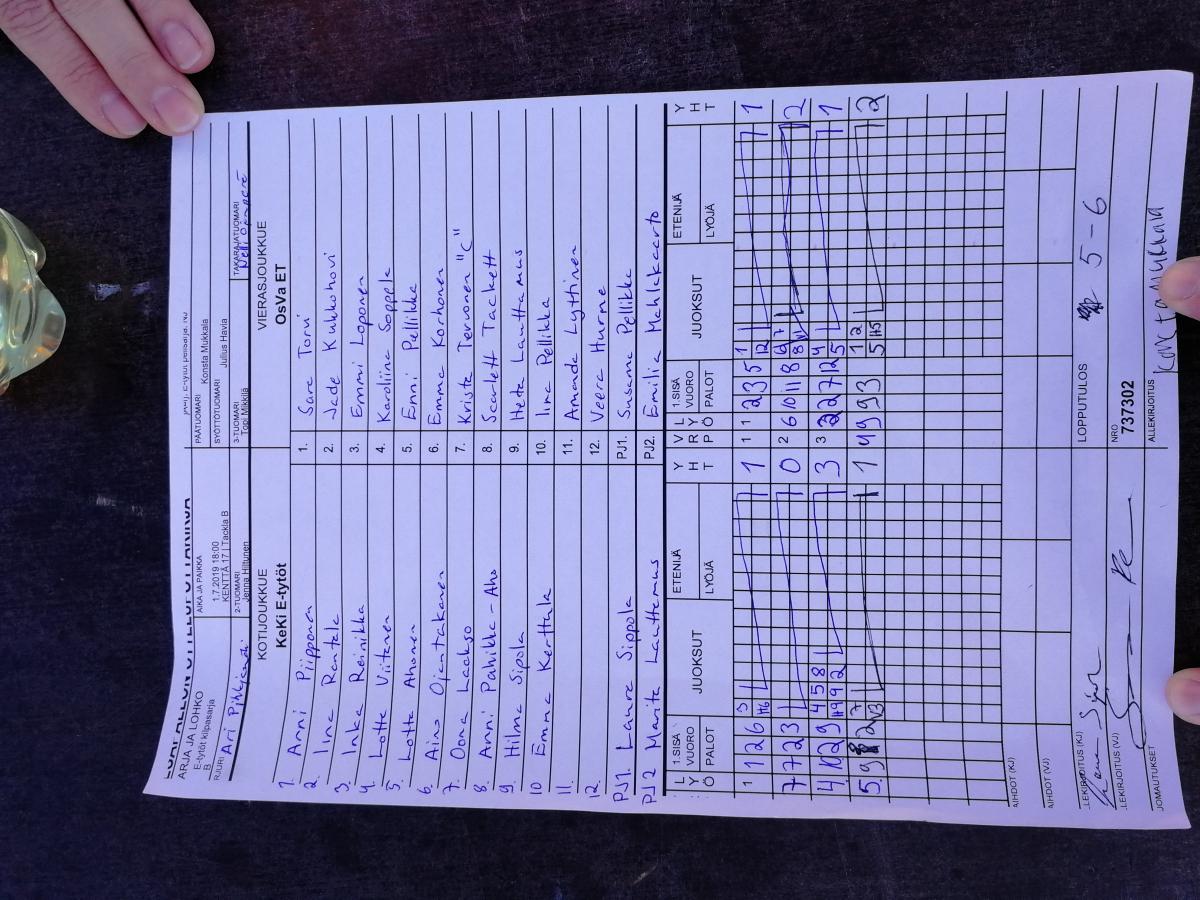 ARJA JA LOHKO
E-tytöt kilpasarja
B
AIKA JA PAIKKA
1.7.2019 18:00
KENTTÄ 17 | Tackla B
PÄÄTUOMARI Konsta Mukkala
SYÖTTÖTUOMARI Julius Havia
2-TUOMARI
Jenna Hiltunen
3-TUOMARI
Topi Mikkilä
TAKARAJATUOMARI
KOTIJOUKKUE VIERASJOUKKUE
KeKi E-tytöt OsVa ET
1. Anni Piipponen 1. Sara Torvi
2. Iina Rantala 2. Jade Kukkohovi
3. Inka Reinikka 3. Emmi Loponen
4. Lotta Viitanen 4. Karoliina Seppälä
5. Lotta Ahonen 5. Enni Pellikka
6. Aino Ojantakanen 6. Emma Korhonen
7. Oona Laakso 7. Krista Tervonen "C"
8. Anni Pahikka-Aho 8. Scarlett Tackett
9. Hilma Sipola 9. Heta Lauttamus
10 Emma Kerttula 10. Iina Pellikka
11. 11. Amanda Lyttinen
12. 12. Veera Hurme
PJ1. Laura Sippola PJ1. Susanna Pellikka
PJ2 Marita Lauttamus PJ2. Emilia Mahlakaarto
L Y Ö 1.SISÄ VUORO PALOT JUOKSUT ETENIJÄ LYÖJÄ Y H T V R P L Y Ö 1.SISÄ VUORO PALOT JUOKSUT ETENIJÄ LYÖJÄ Y H T
1 1 2 6 3 H6 1 1 1 2 3 5 1 12 1
7 7 2 3 0 2 6 10 11 8 2
4. 10 2 9 4 5 8 H9 9 2 3 3 2 2 7 12 4 5 1
5. 7 V3 1 4 9 9 3 1 2 5 H5 2
AIHDOT (KJ)
AIHDOT (VJ)
LLEKIRJOITUS (KJ) LOPPUTULOS 5 - 6
LLEKIRJOITUS (VJ) NRO
737302
JOMAUTUKSET ALLEKIRJOITUS
Konsta Mukkala